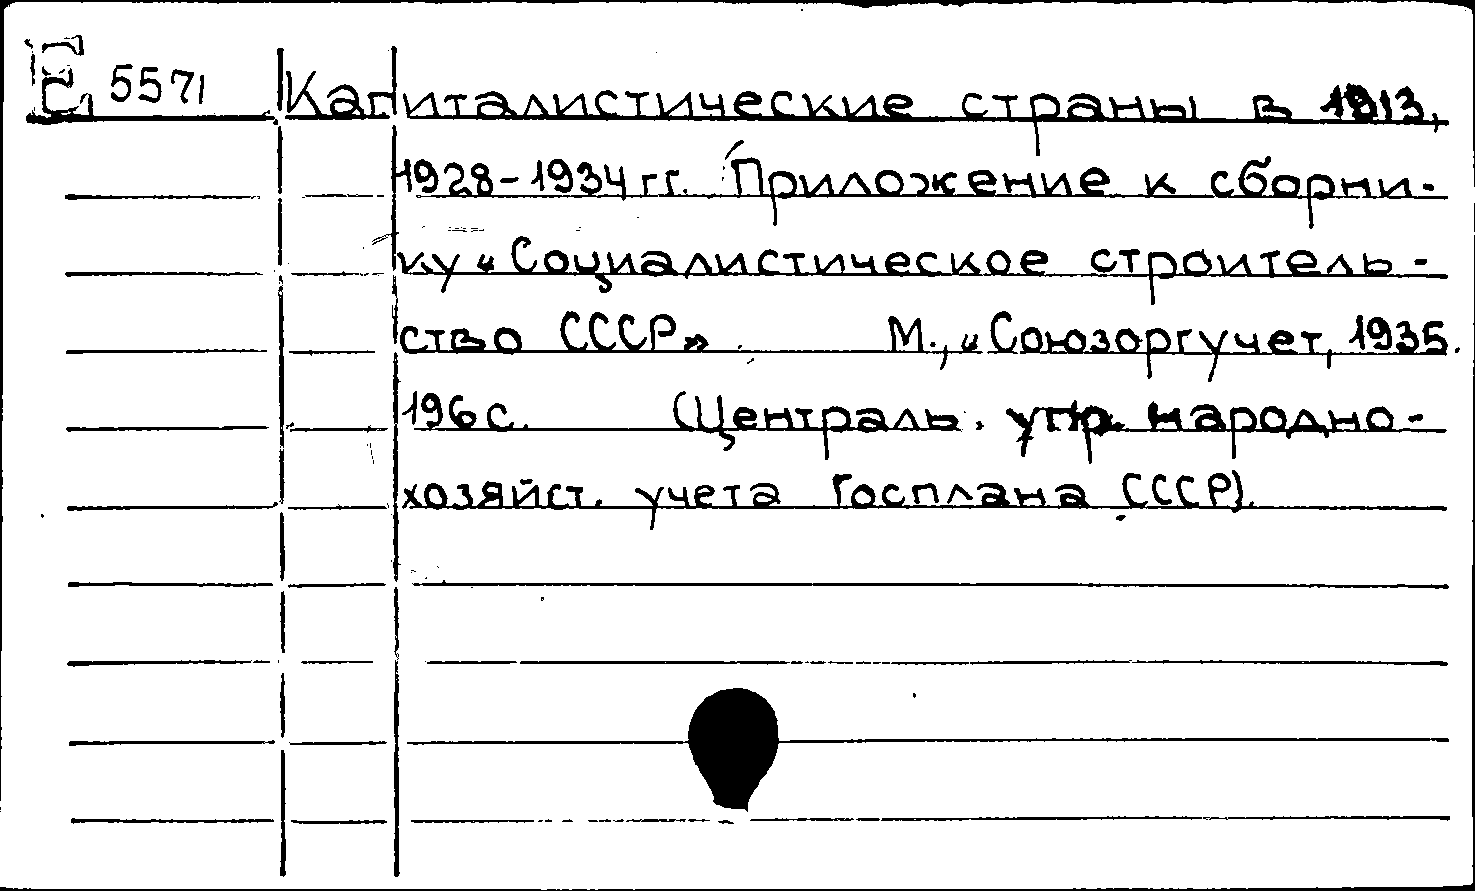 E 5571 Капиталистические страны в 1913,
1928-1934 гг. Приложение к сборни-
ку "Социалистическое строитель-
ство СССР" М., "Союзоргучет, 1935.
196 с. (Централь. упр. народно-
хозяйст. учета Госплана СССР).